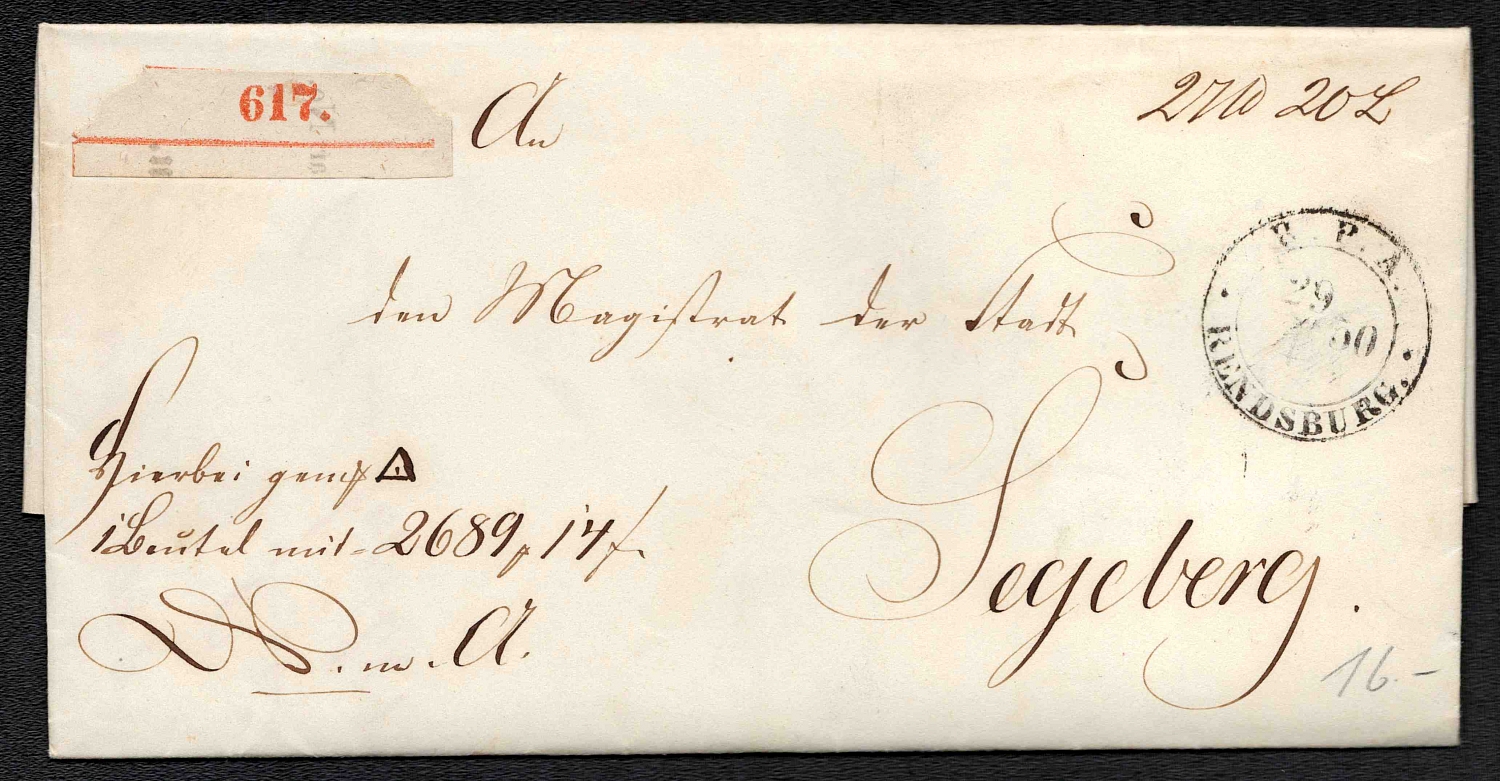 617.
An
27 ℔ 20 L
den Magistrat der Stadt
Segeberg.
Hierbei gemß △
1 Beutel mit 2689 14
A.
P. A.
29
50
RENDSBURG.
16.-